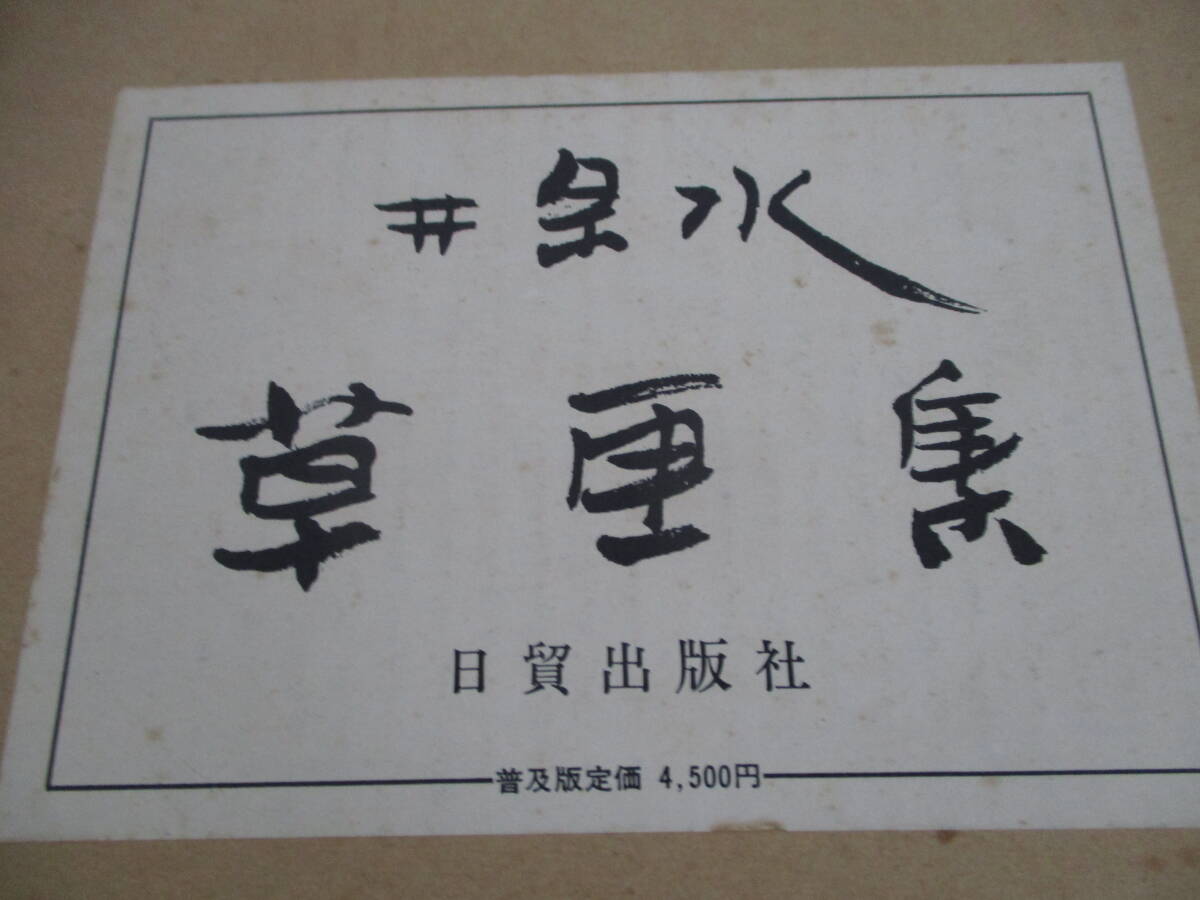 井泉水
草画集
日貿出版社
普及版定価 4,500円